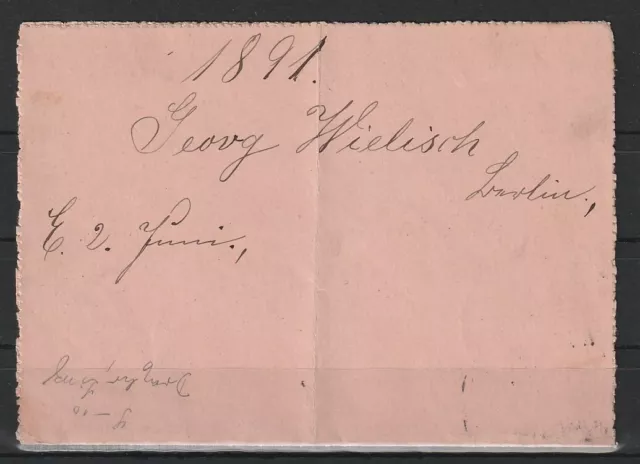 1891.
Georg Wielisch
Berlin.,
E. 2. Juni.,